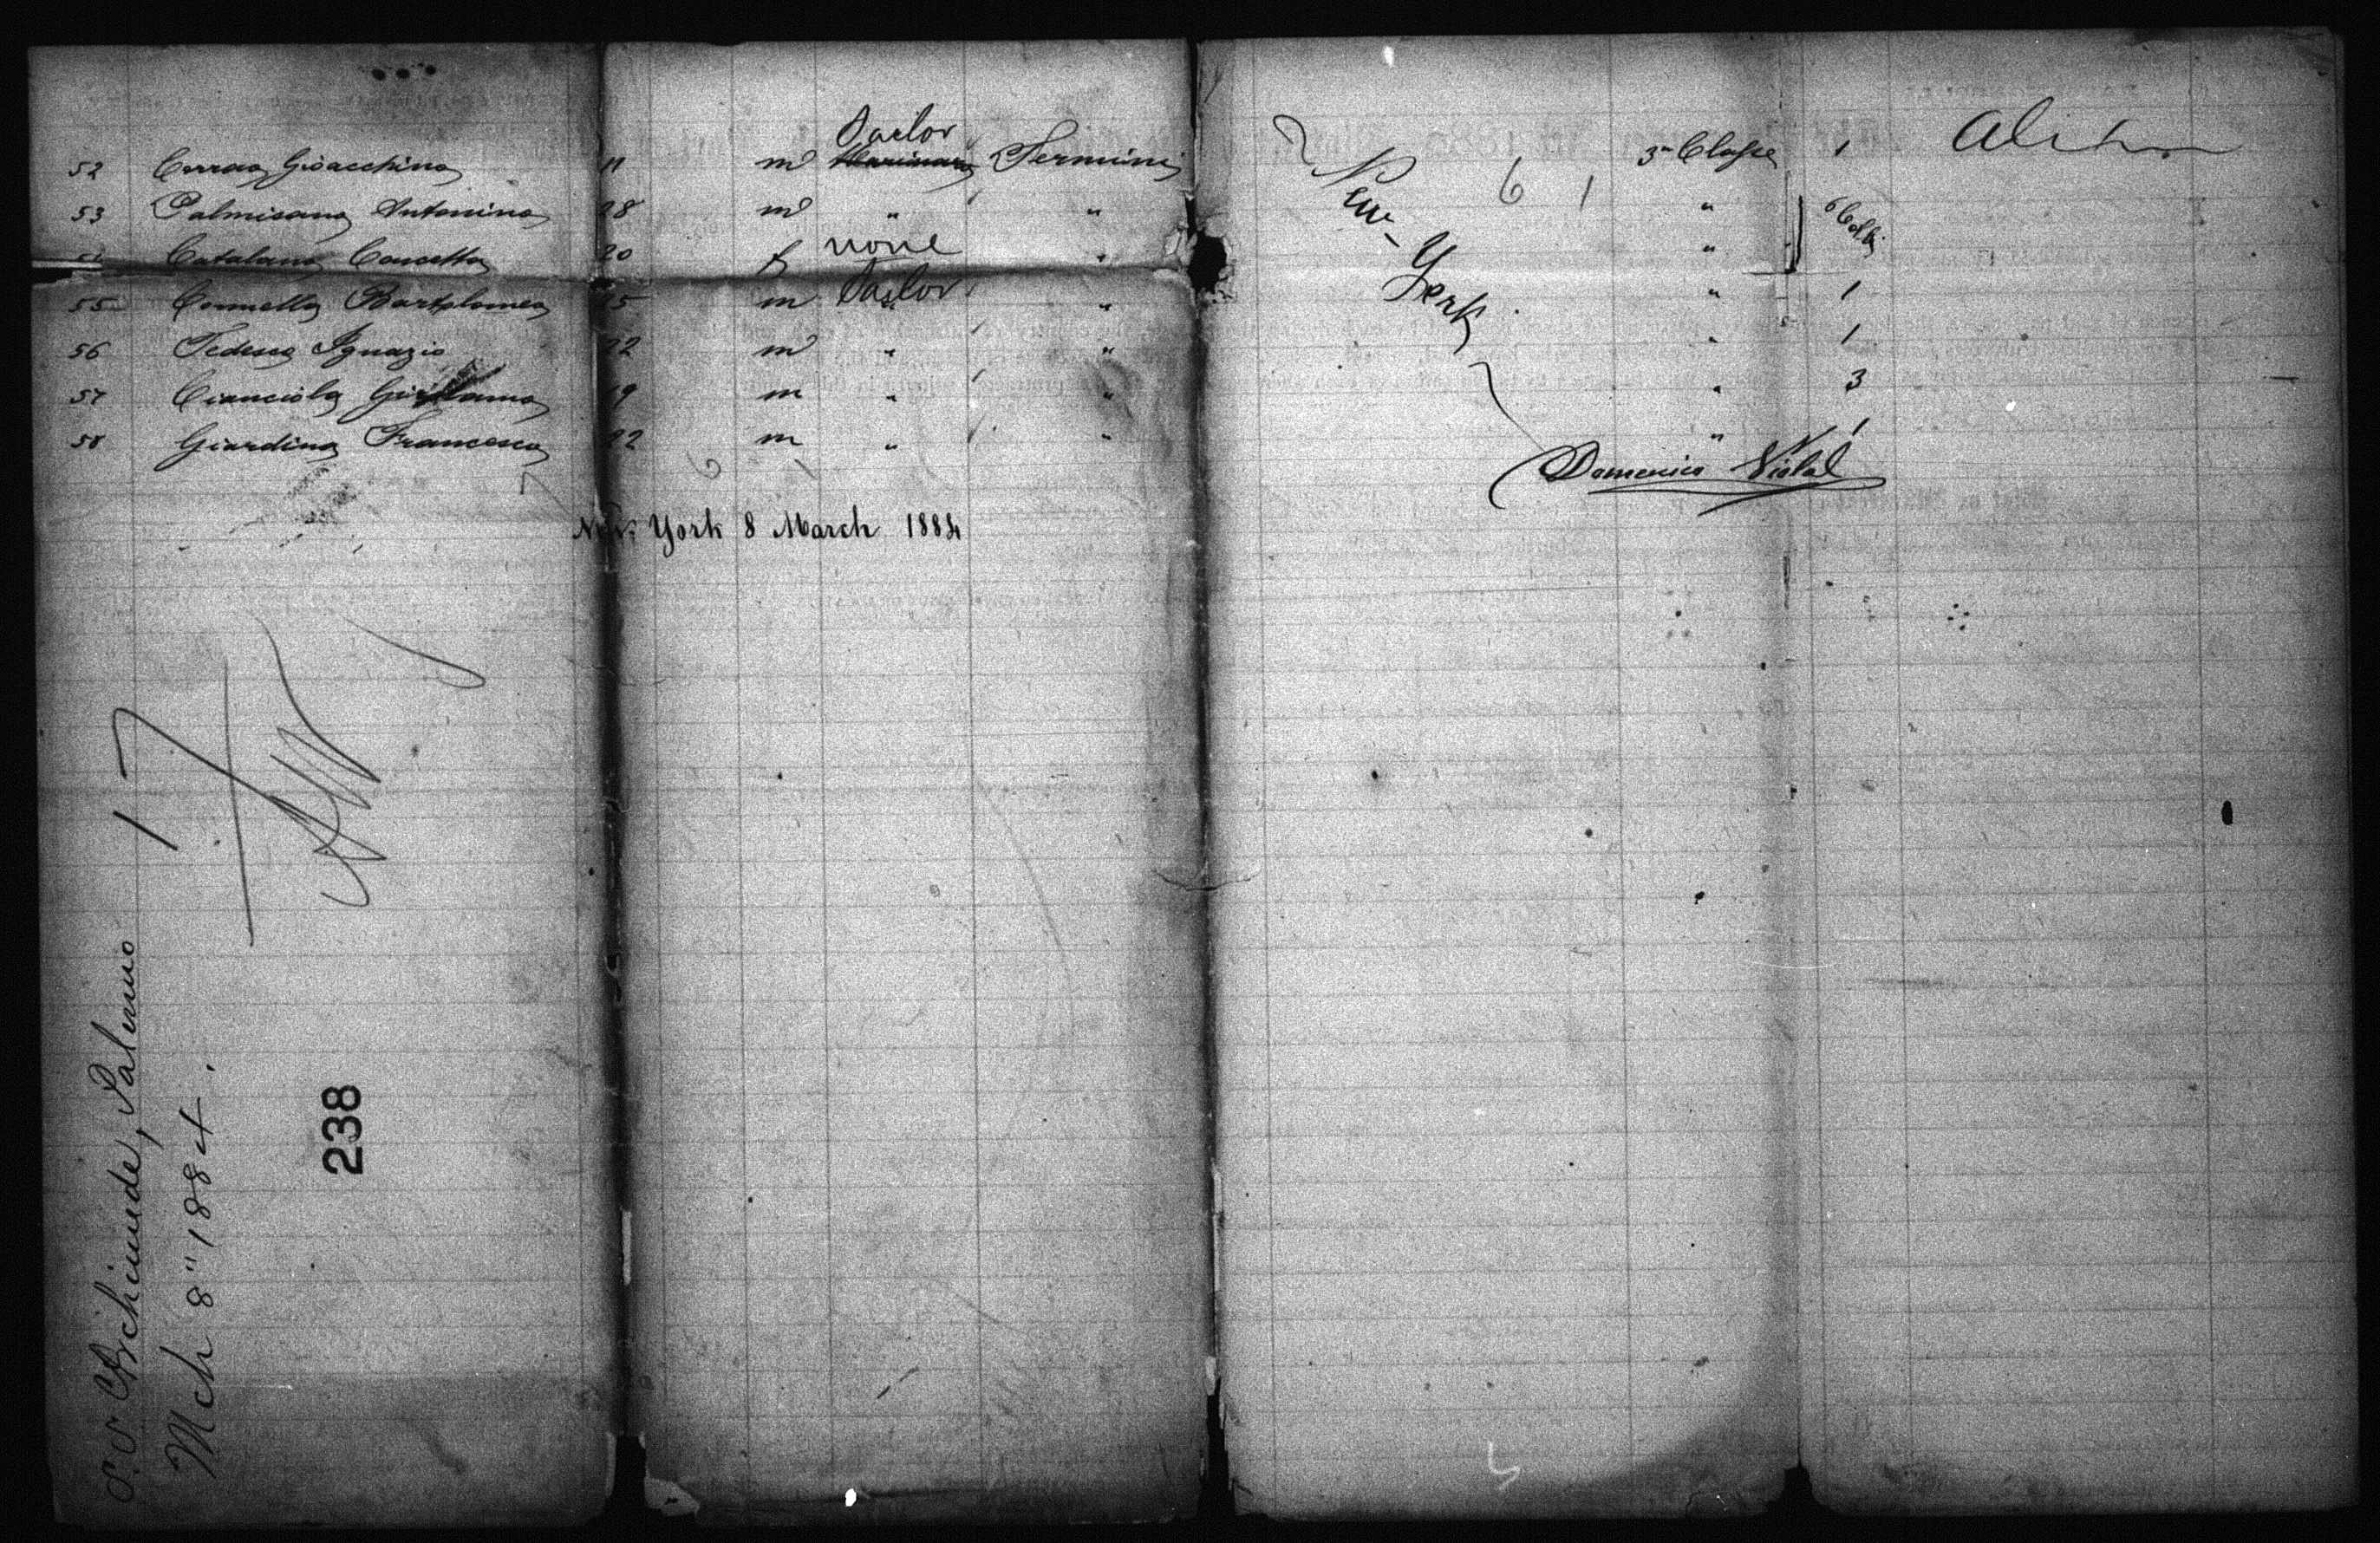 Sailor
52 Cerrao Gioacchino 11 m Marinaro Termini 3a Classe 1
53 Palmisano Antonino 28 m " " " 6 Colli
Catalano Concetta 20 f none " "
55 Bartolomeo 15 m Sailor " " 1
56 Tedesco Ignazio 22 m " " " 1
57 Cianciolo Girolamo 19 m " " " 3
58 Giardina Francesco 22 m " " " 1
New-York
6 1
Domenico Violal
New York 8 March 1884
S.S. Archimede, Palermo
Mch 8" 1884.
238